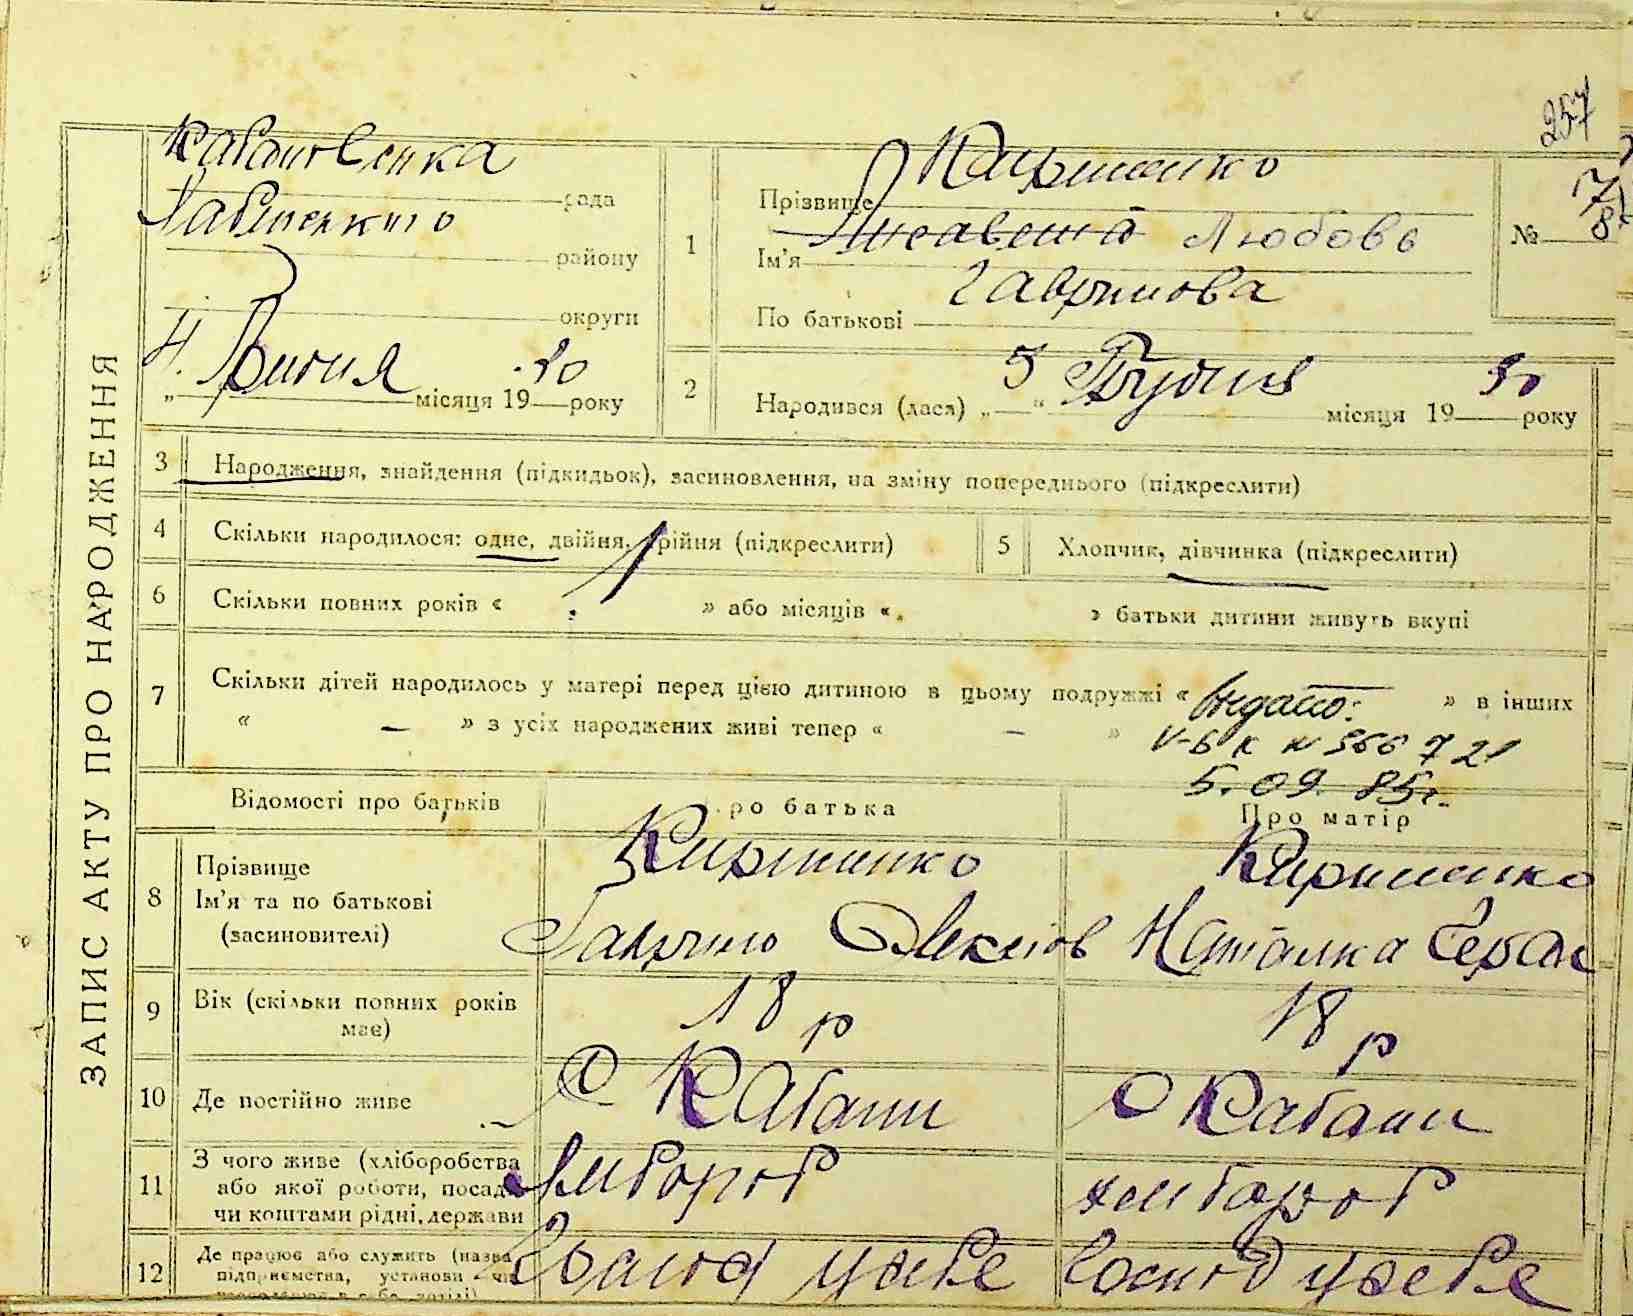 257
ЗАПИС АКТУ ПРО НАРОДЖЕННЯ
рада
району
округи
місяця 19 30 року
1
Прізвище Кириченко
Ім'я Любовь
По батькові Гаврилова
№ 78
2
Народився (лася) „ 5 “ місяця 19 30 року
3 Народження, знайдення (підкидьок), засиновлення, на зміну попереднього (підкреслити)
4 Скільки народилося: одне, двійня, трійня (підкреслити)
5 Хлопчик, дівчинка (підкреслити)
6 Скільки повних років « » або місяців « » батьки дитини живуть вкупі
7 Скільки дітей народилось у матері перед цією дитиною в цьому подружжі « — » в інших
« — » з усіх народжених живі тепер « — »
Видано:
V-БК N 366721
5.09.85г.
Відомості про батьків
Про батька
Про матір
8 Прізвище
Ім'я та по батькові
(засновителі)
Кириченко
Гаврило
Кириченко
Наталка
9 Вік (скільки повних років
має)
18 р
18 р
10 Де постійно живе
С. Кабани
С Кабани
11 З чого живе (хліборобства
або якої роботи, посади
чи коштами рідні, держави
хлібороб
хлібороб
12 Де працює або служить (назва
підприємства, установи чи